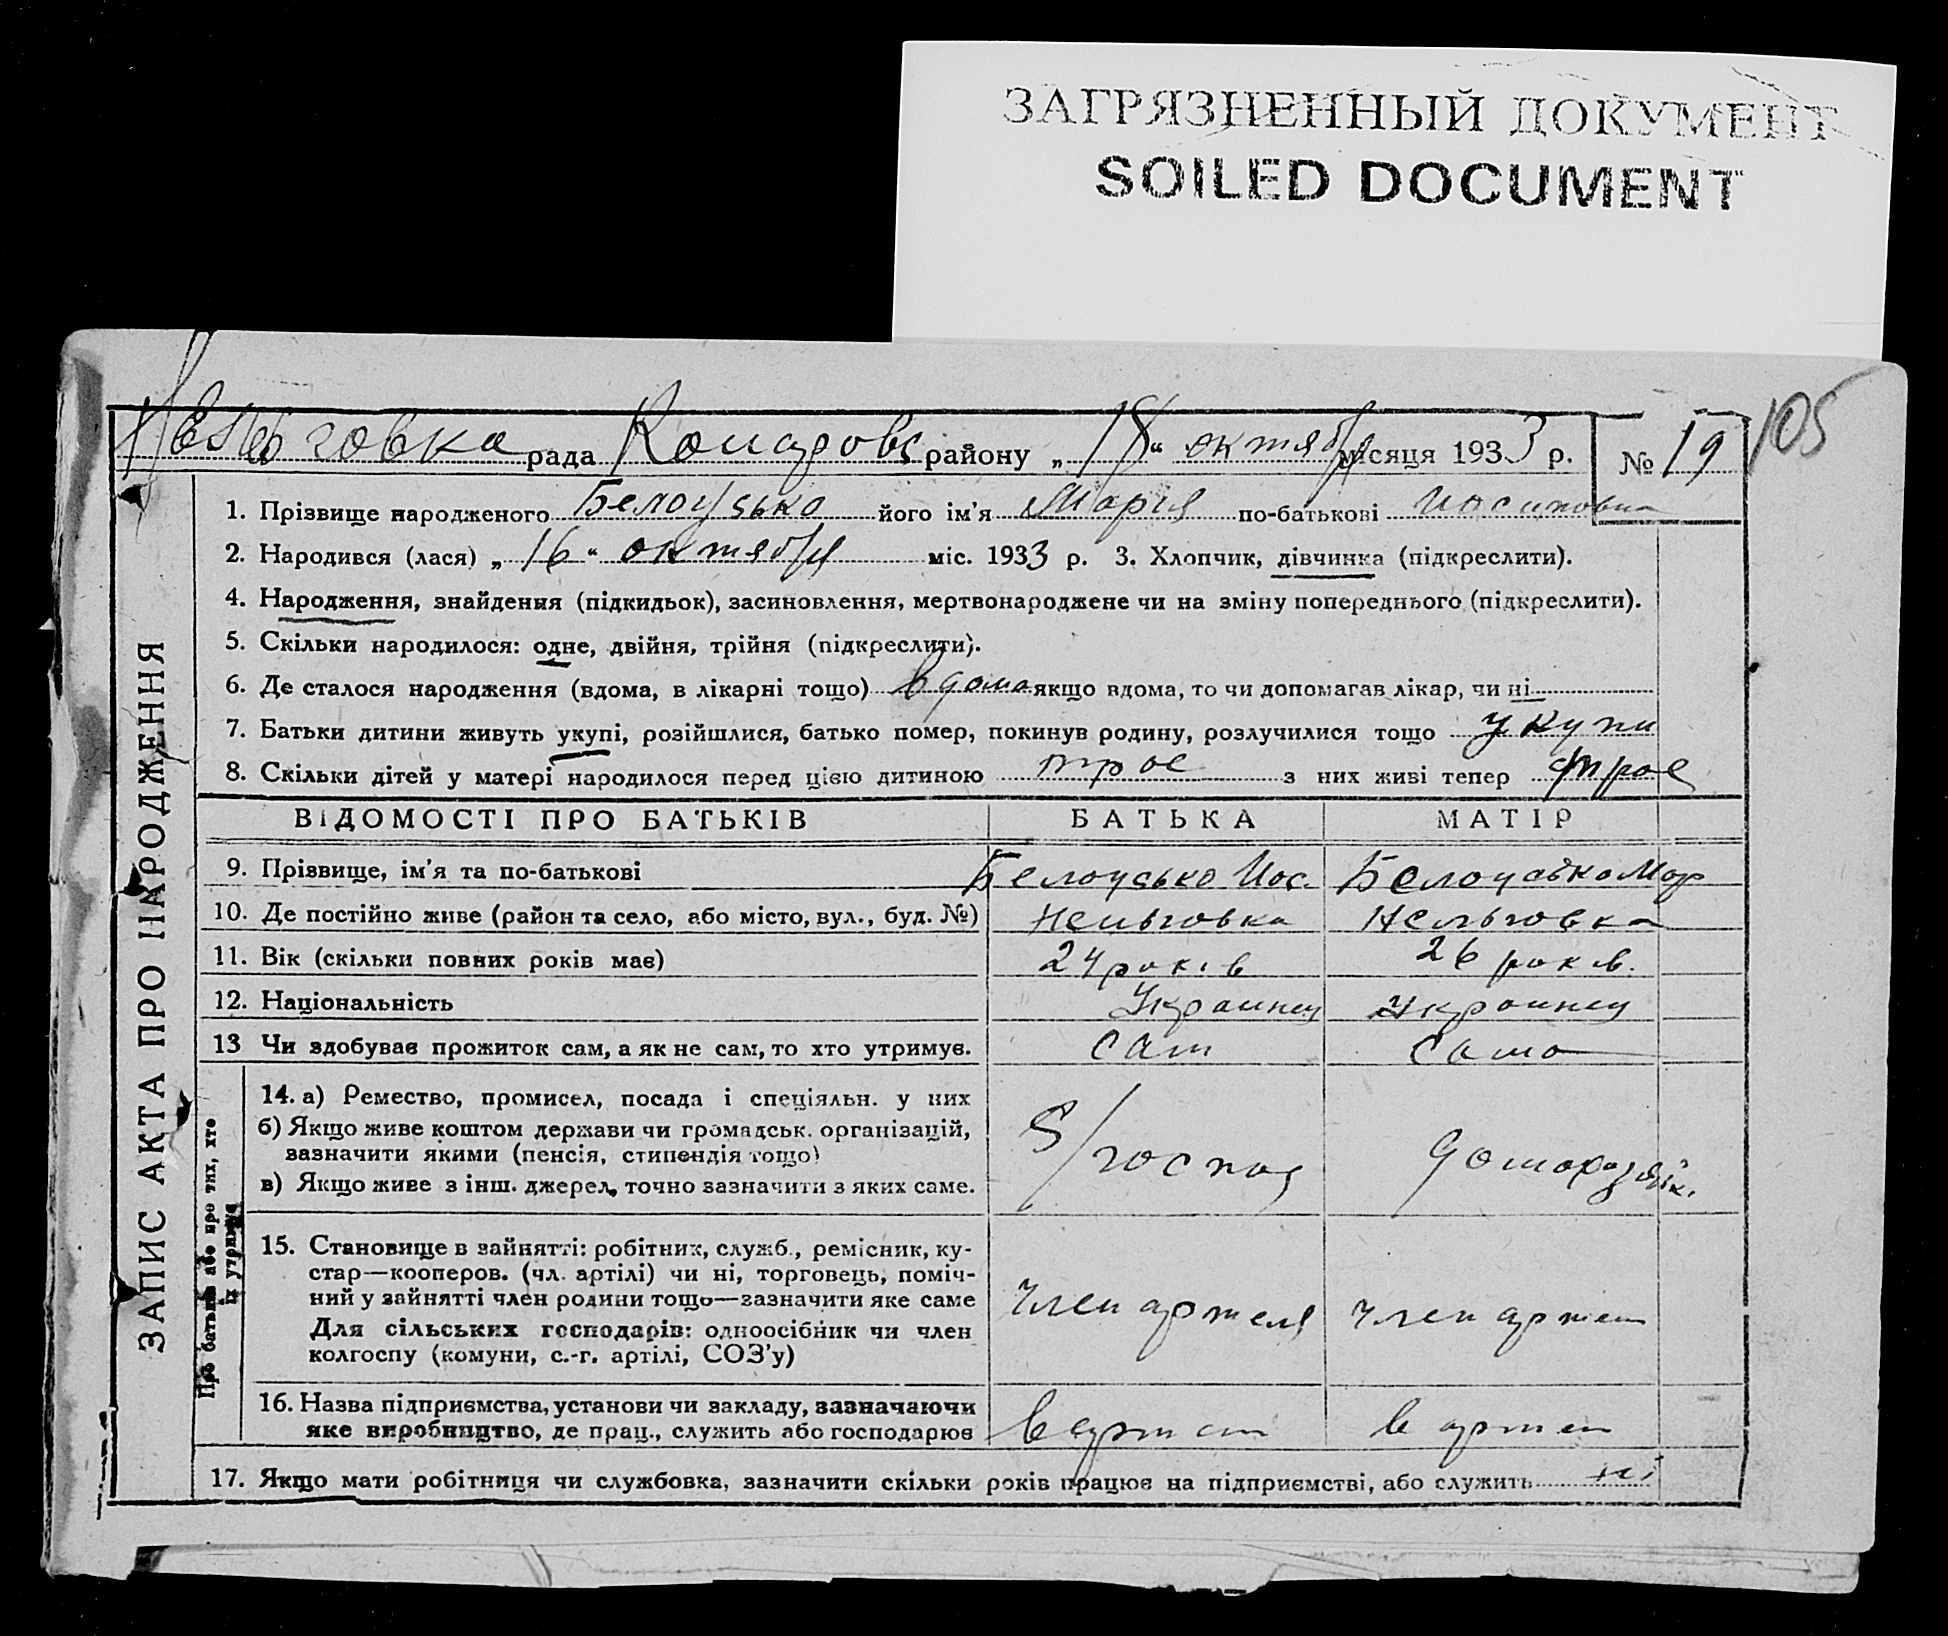 ЗАГРЯЗНЕННЫЙ ДОКУМЕНТ
SOILED DOCUMENT
105
Нельговка рада Комаровс району „ 18 “ октября місяця 1933 р. № 19
1. Прізвище народженого Белоусько його ім'я Мария по-батькові Иосиповна
2. Народився (лася) „ 16 “ октября міс. 1933 р. 3. Хлопчик, дівчинка (підкреслити).
4. Народження, знайдення (підкидьок), засиновлення, мертвонароджене чи на зміну попереднього (підкреслити).
5. Скільки народилося: одне, двійня, трійня (підкреслити).
6. Де сталося народження (вдома, в лікарні тощо) вдома якщо вдома, то чи допомагав лікар, чи ні
7. Батьки дитини живуть укупі, розійшлися, батько помер, покинув родину, розлучилися тощо укупи
8. Скільки дітей у матері народилося перед цією дитиною трое з них живі тепер трое
ЗАПИС АКТА ПРО НАРОДЖЕННЯ
ВІДОМОСТІ ПРО БАТЬКІВ БАТЬКА МАТІР
9. Прізвище, ім'я та по-батькові Белоусько Иос. Белоусько Мар
10. Де постійно живе (район та село, або місто, вул., буд. №) Нельговка Нельговка
11. Вік (скільки повних років має) 24 років 26 років.
12. Національність Украинец Украинец
13 Чи здобуває прожиток сам, а як не сам, то хто утримує. сам сама
Про батьків або про тих, хто
їх утримує
14. а) Ремество, промисел, посада і спеціяльн. у них
б) Якщо живе коштом держави чи громадськ. організацій,
зазначити якими (пенсія, стипендія тощо)
в) Якщо живе з інш. джерел, точно зазначити з яких саме.
домохозяйк.
15. Становище в зайнятті: робітник, служб., ремісник, ку-
стар—кооперов. (чл. артілі) чи ні, торговець, поміч-
ний у зайнятті член родини тощо—зазначити яке саме
Для сільських господарів: одноосібник чи член
колгоспу (комуни, с.-г. артілі, СОЗ'у)
член артеля член артел
16. Назва підприємства, установи чи закладу, зазначаючи
яке виробництво, де прац., служить або господарює
в артел в артел
17. Якщо мати робітниця чи службовка, зазначити скільки років працює на підприємстві, або служить ні